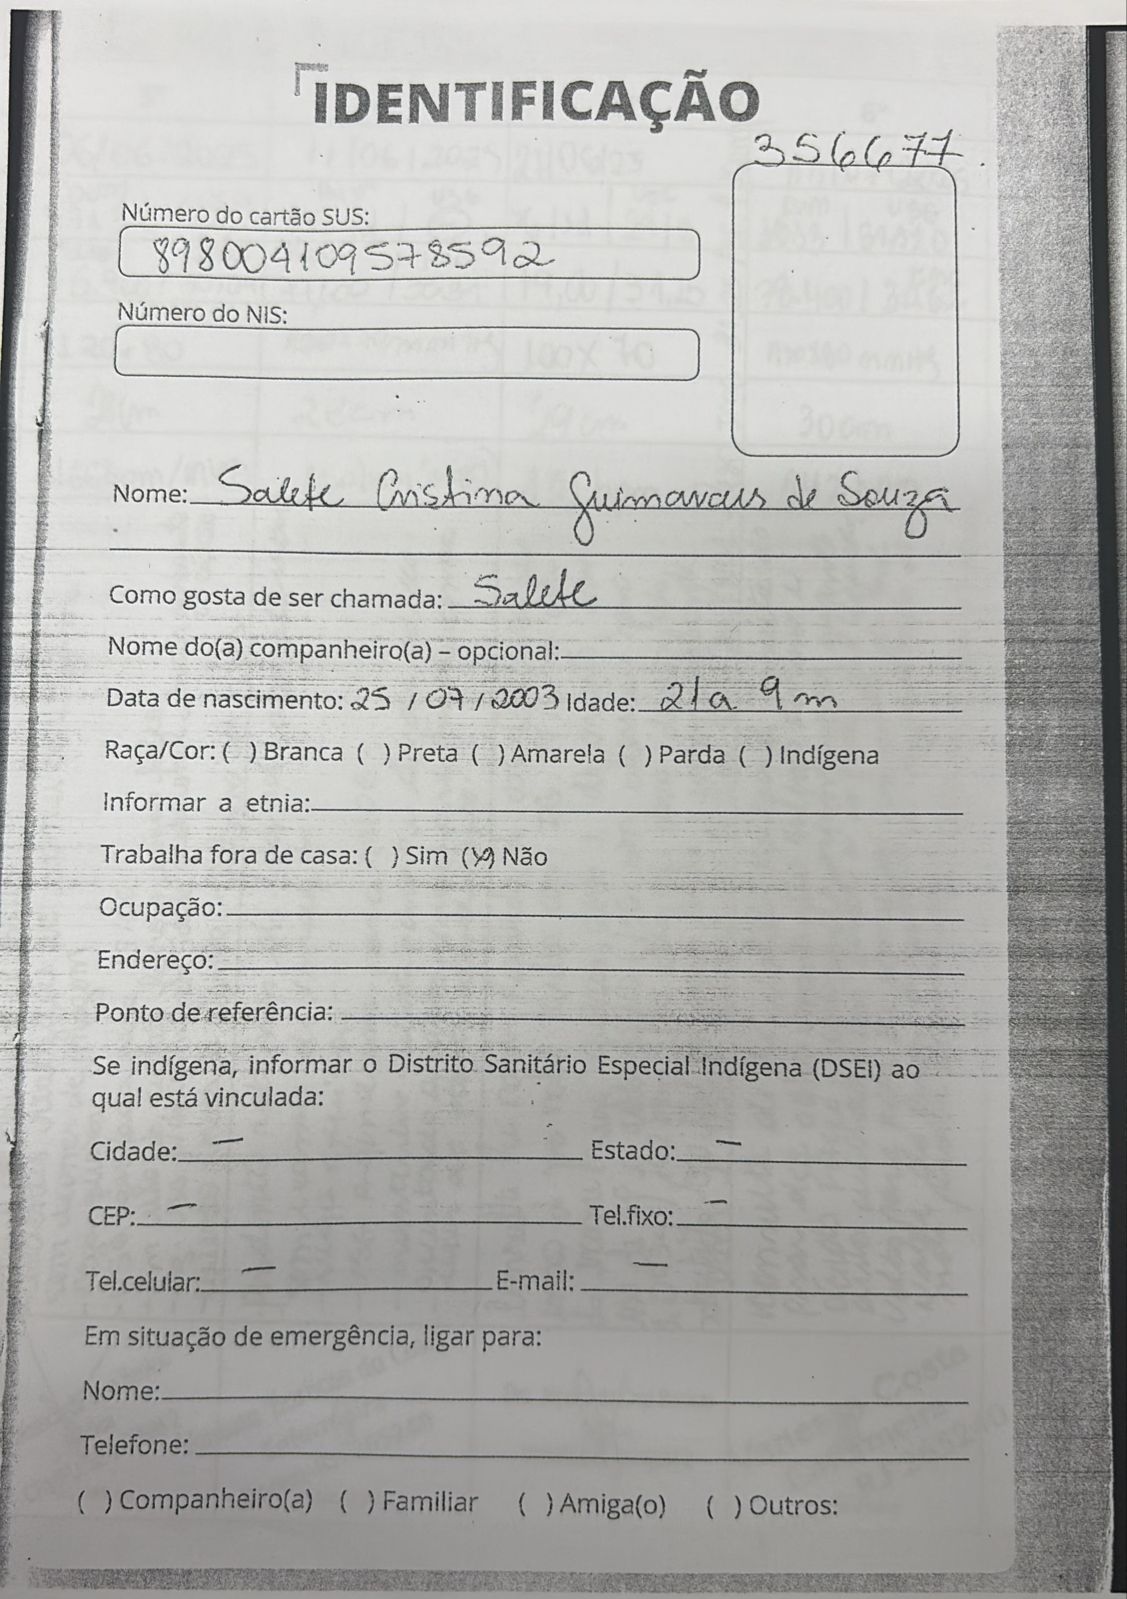 IDENTIFICAÇÃO
356677.
Número do cartão SUS:
898004109578592
Número do NIS:
Nome: Salete Cristina Guimaraes de Souza
Como gosta de ser chamada: Salete
Nome do(a) companheiro(a) – opcional:
Data de nascimento: 25 / 07 / 2003 Idade: 21a 9m
Raça/Cor: ( ) Branca ( ) Preta ( ) Amarela ( ) Parda ( ) Indígena
Informar a etnia:
Trabalha fora de casa: ( ) Sim (X) Não
Ocupação:
Endereço:
Ponto de referência:
Se indígena, informar o Distrito Sanitário Especial Indígena (DSEI) ao
qual está vinculada:
Cidade: — Estado: —
CEP: — Tel.fixo: —
Tel.celular: — E-mail: —
Em situação de emergência, ligar para:
Nome:
Telefone:
( ) Companheiro(a) ( ) Familiar ( ) Amiga(o) ( ) Outros: